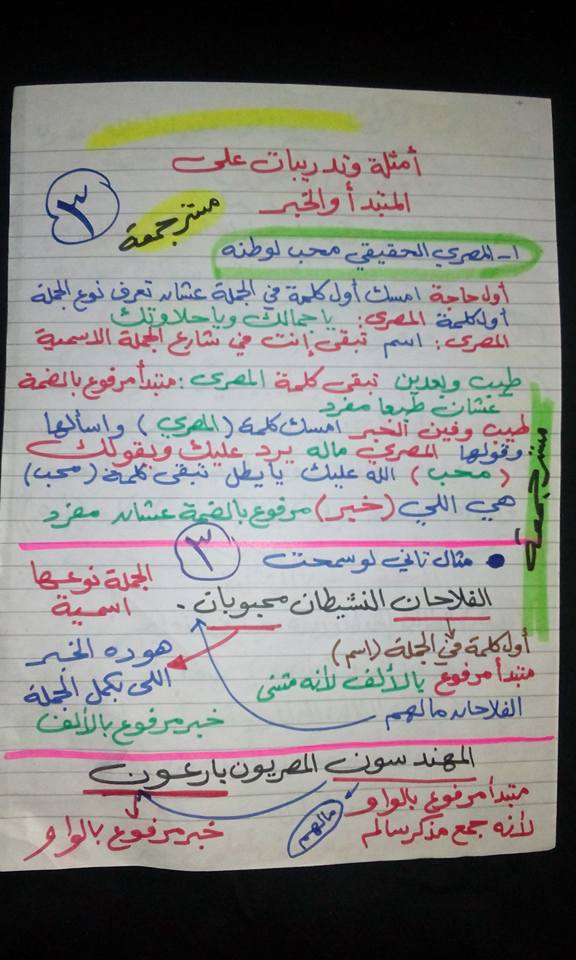 أمثلة وتدريبات على
المبتدأ والخبر
مستر جمعة
٣
١- المصري الحقيقي محب لوطنه
أول حاجة امسك أول كلمة في الجملة عشان تعرف نوع الجملة
أول كلمة المصرى: يا جمالك ويا حلاوتك
المصرى: اسم تبقى إنت في شارع الجملة الاسمية
طيب وبعدين تبقى كلمة المصرى: مبتدأ مرفوع بالضمة
عشان طبعا مفرد
طيب وفين الخبر امسك كلمة (المصري) واسألها
وقولها المصري ماله يرد عليك ويقولك
(محب) الله عليك يا بطل تبقى كلمة (محب)
هي اللي (خبر) مرفوع بالضمة عشان مفرد
مستر جمعة
٣
• مثال تاني لو سمحت
الجملة نوعها
اسمية
الفلاحان النشيطان محبوبان.
أول كلمة في الجملة (اسم)
مبتدأ مرفوع بالألف لأنه مثنى
الفلاحان مالهم
هو ده الخبر
اللى بكمل الجملة
خبر مرفوع بالألف
المهندسون المصريون بارعون
مبتدأ مرفوع بالواو
لأنه جمع مذكر سالم
مالهم
خبر مرفوع بالواو